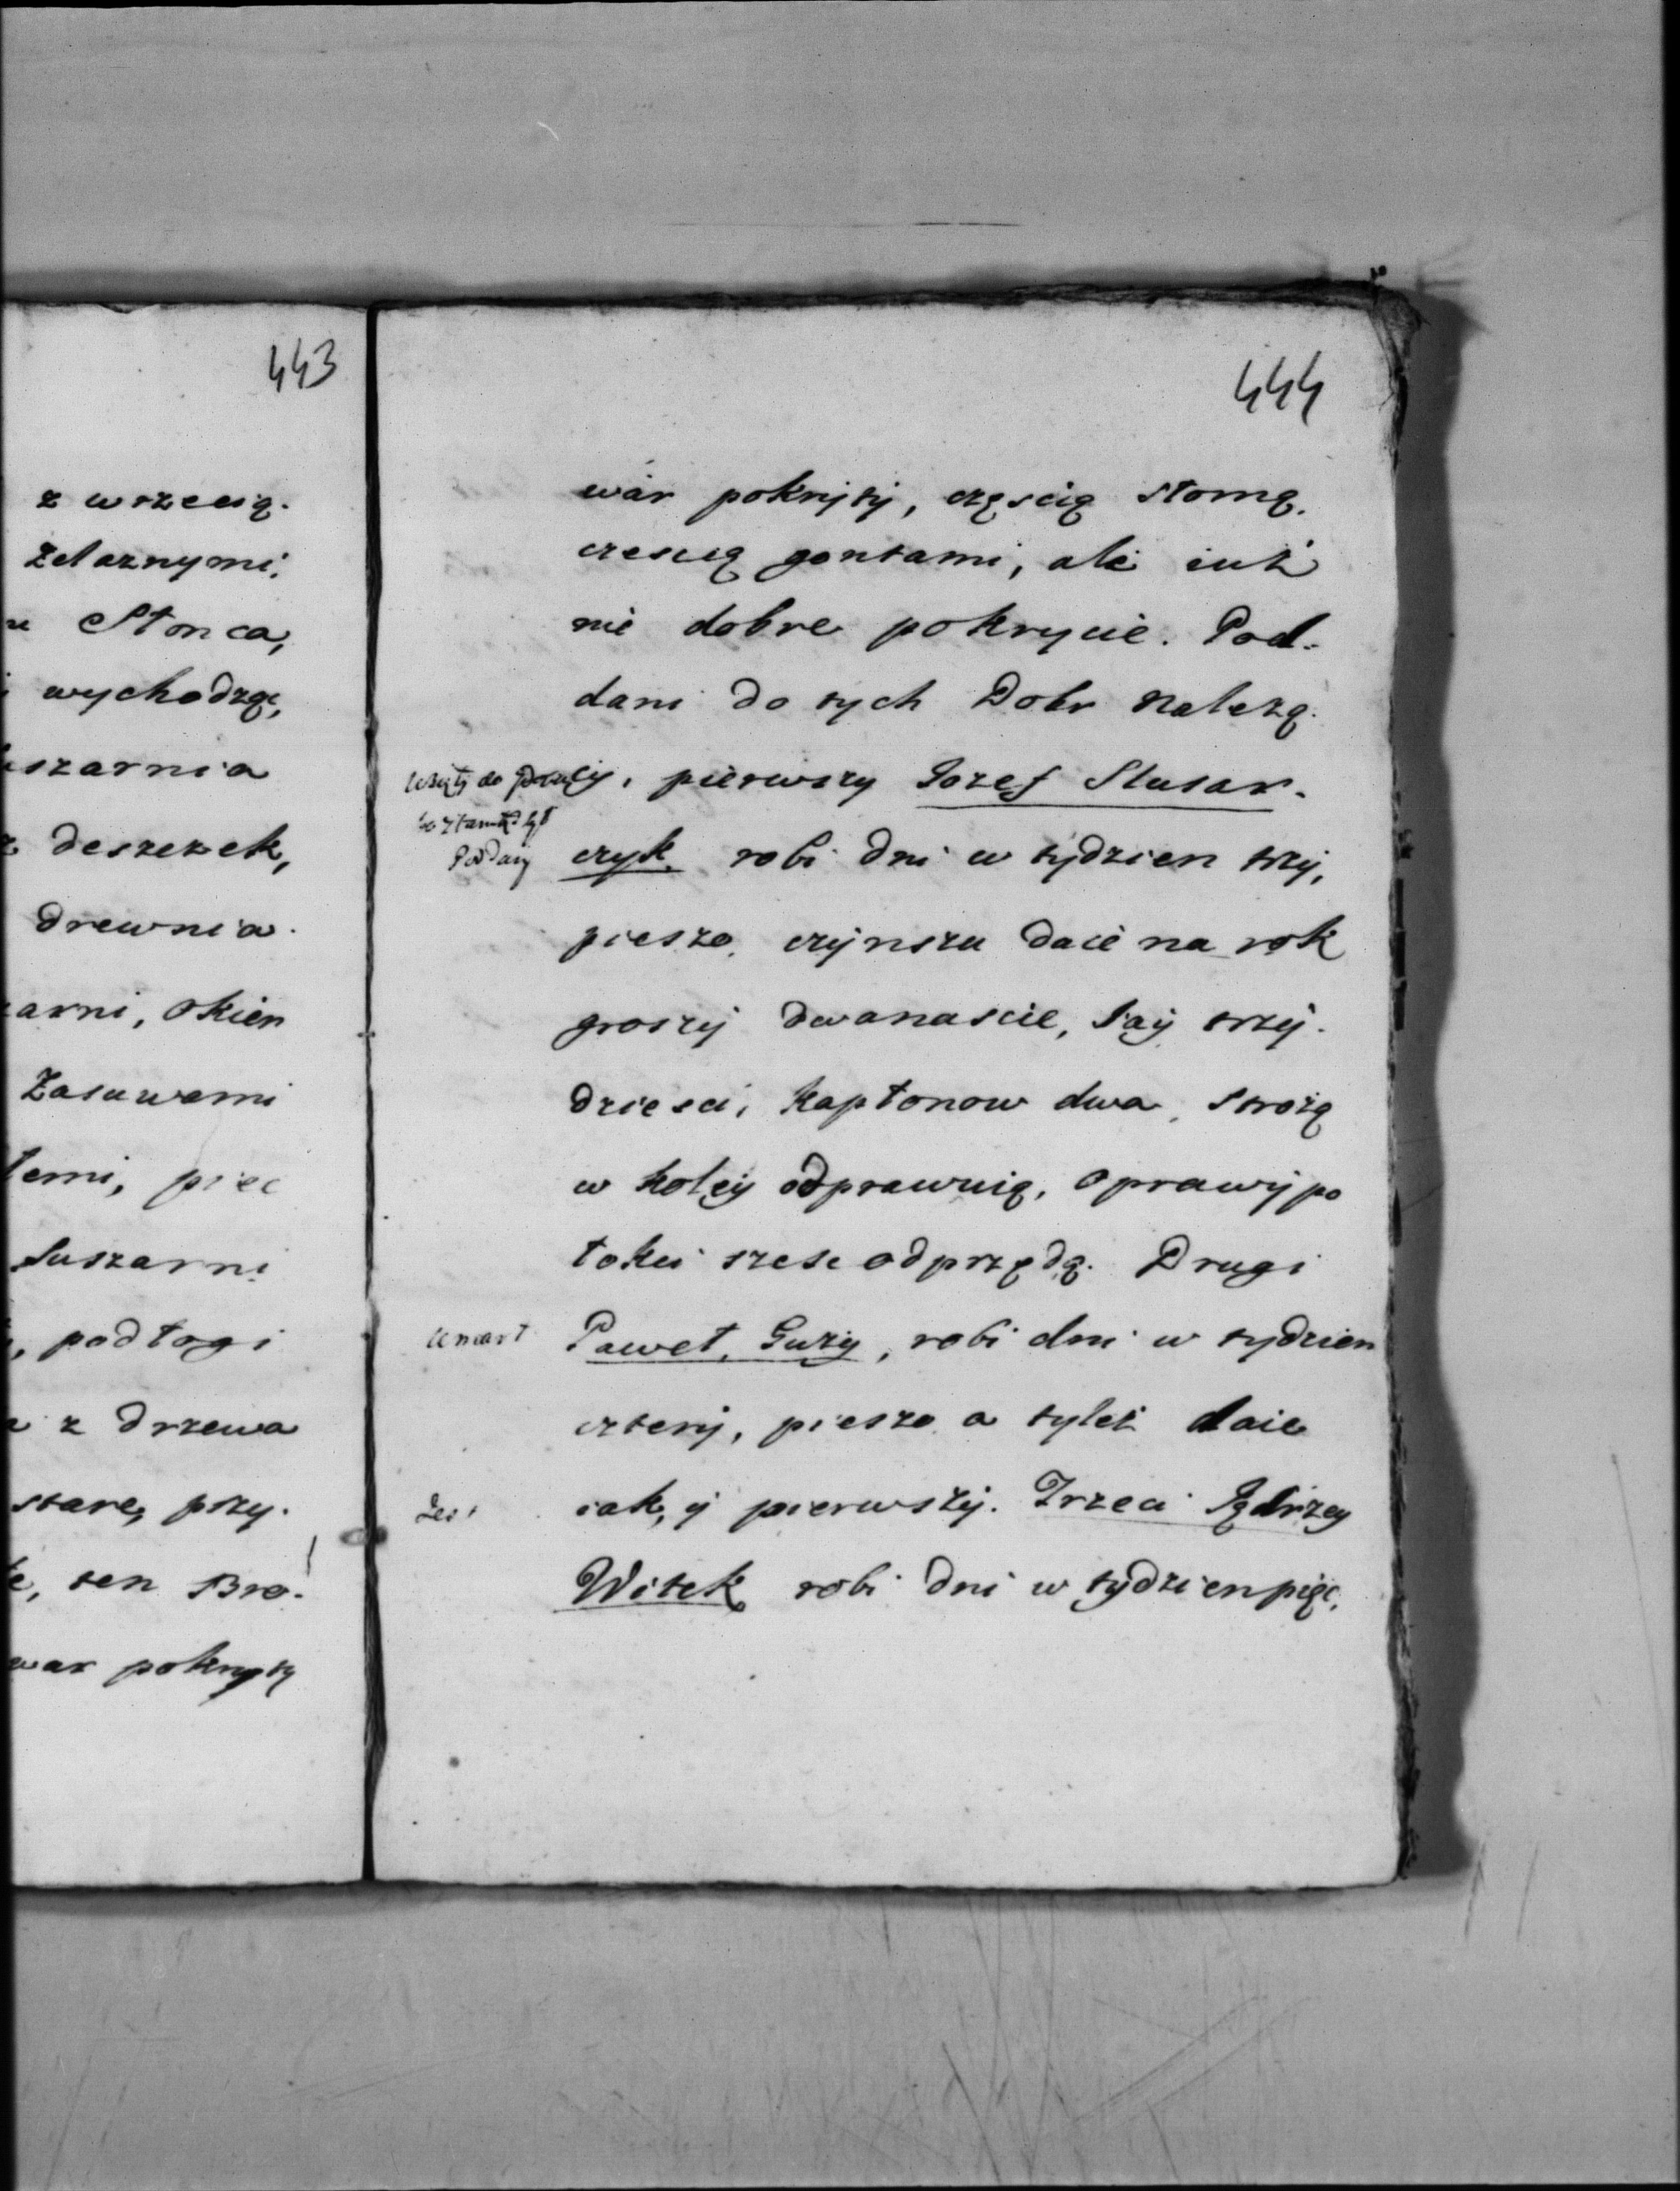 443
z wrzecią.
Zelaznymi,
Słonca,
wychodzą,
szarnia
deszczek,
drewnia.
arni, okien
Zasuwami
temi, piec
Suszarni
, podłogi
z drzewa
stare, przy.
ten Bro.
war pokryty
444
wár pokrÿtÿ, częscią słomą,
czescią gontami, ale iuż
nie dobre pokrycie. Pod-
dani do tych Dobr należą.
Wzięty do
pierwszy Iozef Slusar-
Poddany
czyk robi dni w tydzien trzÿ,
pieszo, czÿnszu daie na rok
groszÿ dwanascie, Iaÿ trzÿ-
dziesci, kapłonow dwa, strożą
w koleÿ odprawuią, oprawÿ po
łokci szesc odprzędą. Drugi
umarł
Paweł, Guzÿ, robi dni w tydzien
czterÿ, pieszo a tyleż daie
iest
iak, ÿ pierwszÿ. Trzeci Jędrzey
Witek robi dni w tydzien pięć,